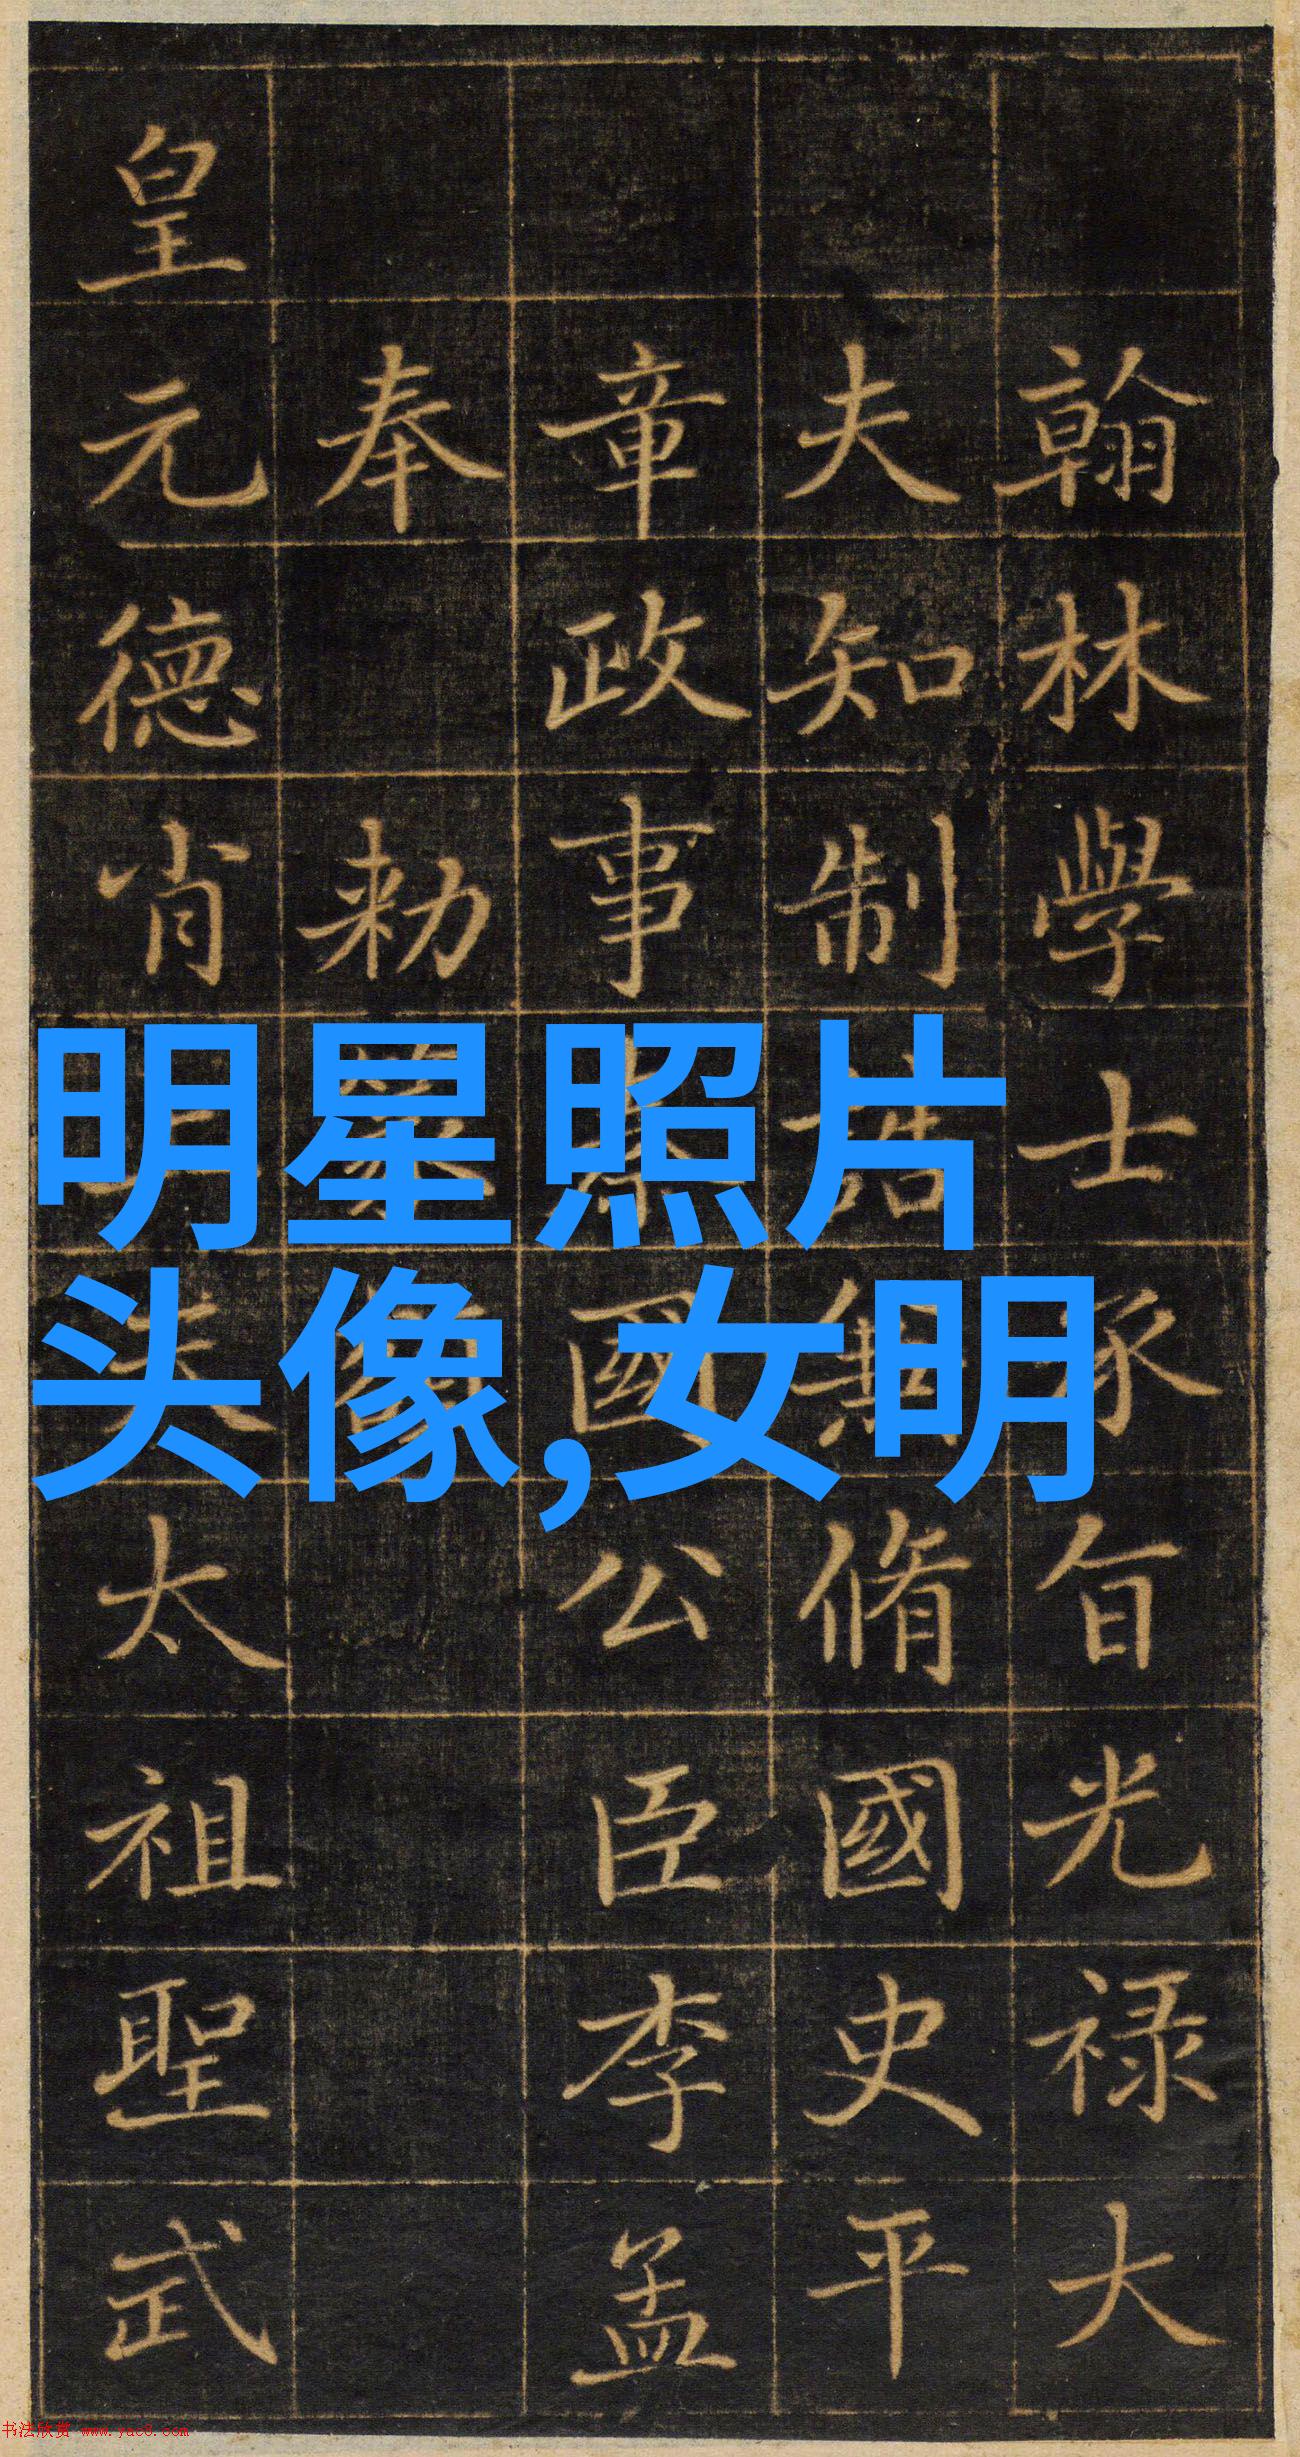 明星照片
头像,女明
翰林學士承旨光禄大
夫知制誥兼脩國史平
章政事國公臣李孟
奉勑
皇元德肖太祖聖武
书法欣赏 www.yac8.com